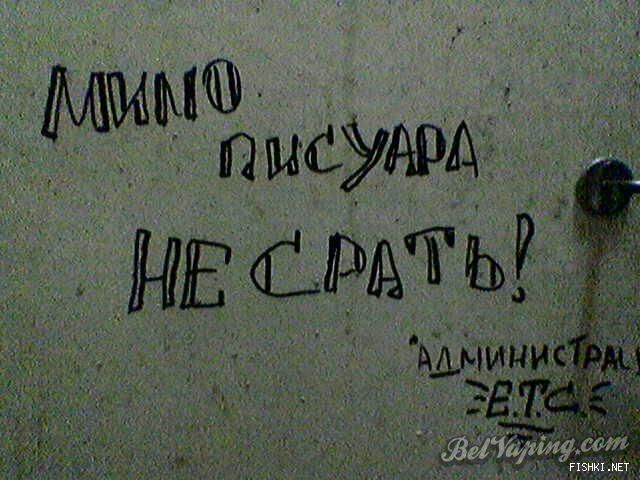 МИМО
ПИСУАРА
НЕ СРАТЬ!
"АДМИНИСТРАЦ
E.T.C.
BelVaping.com
FISHKI.NET